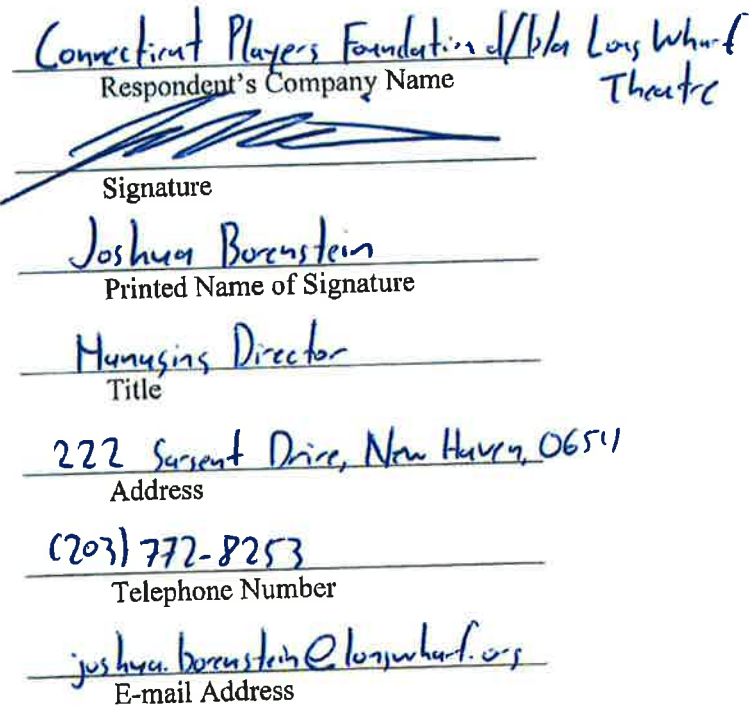 Connecticut Players Foundation d/b/a Long Wharf
Theatre
Respondent's Company Name
Signature
Joshua Borenstein
Printed Name of Signature
Managing Director
Title
222 Sargent Drive, New Haven, 06511
Address
(203) 772-8253
Telephone Number
joshua.borenstein@longwharf.org
E-mail Address